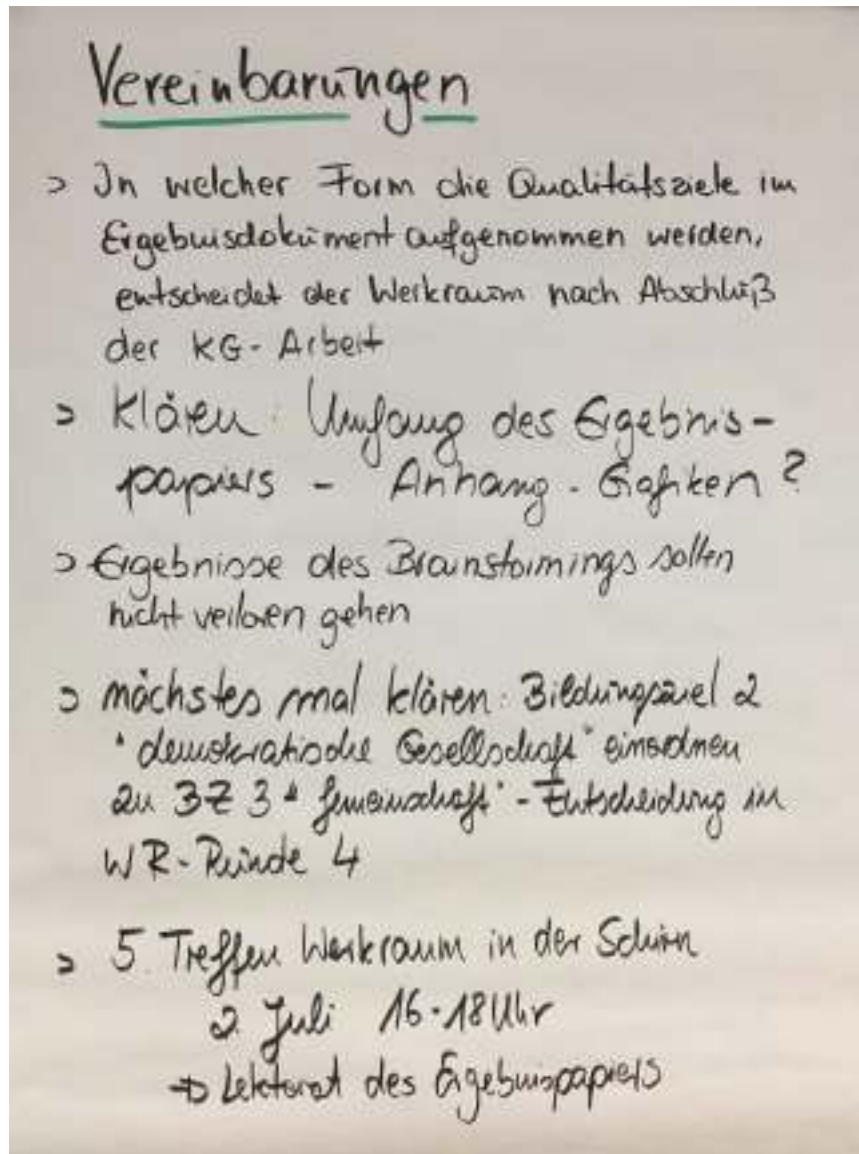 Vereinbarungen
> In welcher Form die Qualitätsziele im
Ergebnisdokument aufgenommen werden,
entscheidet der Werkraum nach Abschluß
der KG-Arbeit
> Klären: Umfang des Ergebnis-
papiers - Anhang - Grafiken?
> Ergebnisse des Brainstormings sollen
nicht verloren gehen
> nächstes mal klären: Bildungsziel 2
"demokratische Gesellschaft" einordnen
zu BZ 3 "Gemeinschaft" - Entscheidung in
WR-Runde 4
> 5. Treffen Werkraum in der Schirn
2. Juli 16-18 Uhr
⇒ Lektorat des Ergebnispapiers